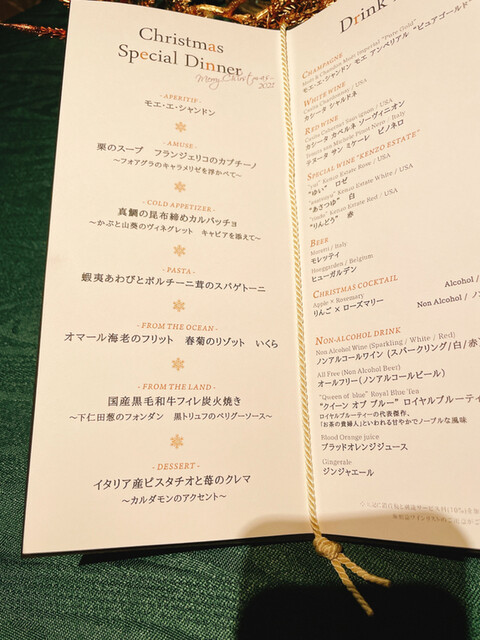 Christmas
Special Dinner
Merry Christmas
2021
- APERITIF -
モエ・エ・シャンドン
- AMUSE -
栗のスープ フランジェリコのカプチーノ
～フォアグラのキャラメリゼを浮かべて～
- COLD APPETIZER -
真鯛の昆布締めカルパッチョ
～かぶと山葵のヴィネグレット キャビアを添えて～
- PASTA -
蝦夷あわびとポルチーニ茸のスパゲトーニ
- FROM THE OCEAN -
オマール海老のフリット 春菊のリゾット いくら
- FROM THE LAND -
国産黒毛和牛フィレ炭火焼き
～下仁田葱のフォンダン 黒トリュフのペリグーソース～
- DESSERT -
イタリア産ピスタチオと苺のクレマ
～カルダモンのアクセント～
Drink
CHAMPAGNE
Moët & Chandon Moët Impérial "Pure Gold"
モエ・エ・シャンドン モエ アンペリアル "ピュアゴールド"
WHITE WINE
/ USA
カシータ シャルドネ
RED WINE
Casita Cabernet Sauvignon / USA
カシータ カベルネ ソーヴィニオン
Pinot Nero / Italy
テヌータ サン ミケーレ ピノネロ
SPECIAL WINE "KENZO ESTATE"
"yui" Kenzo Estate Rose / USA
"ゆい" ロゼ
"asatsuyu" Kenzo Estate White / USA
"あさつゆ" 白
"rindo" Kenzo Estate Red / USA
"りんどう" 赤
BEER
Moretti / Italy
モレッティ
Hoegaarden / Belgium
ヒューガルデン
CHRISTMAS COCKTAIL
Apple × Rosemary
りんご × ローズマリー
Alcohol /
Non Alcohol / ノン
NON-ALCOHOL DRINK
Non Alcohol Wine (Sparkling / White / Red)
ノンアルコールワイン (スパークリング/白/赤)
All Free (Non Alcohol Beer)
オールフリー (ノンアルコールビール)
"Queen of blue" Royal Blue Tea
"クイーン オブ ブルー" ロイヤルブルーティー
ロイヤルブルーティーの代表傑作、
「お茶の貴婦人」といわれる甘やかでノーブルな風味
Blood Orange juice
ブラッドオレンジジュース
Gingerale
ジンジャエール